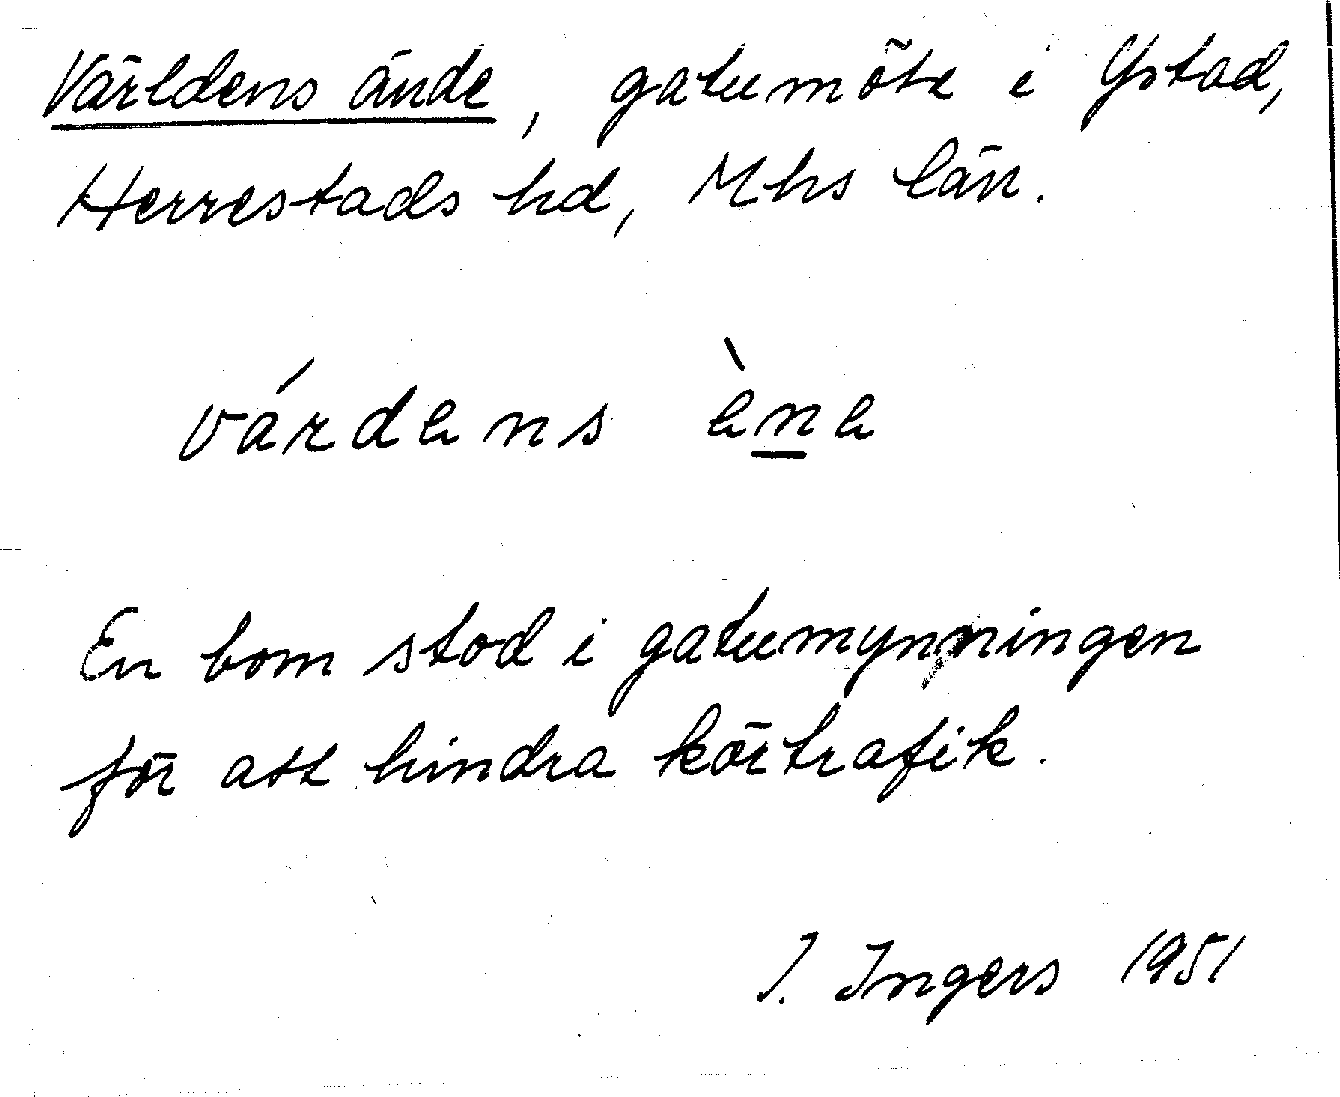 Världens ände, gatumöte i Ystad,
Herrestads hd, Mhs län.
várdens ène
En bom stod i gatumynningen
för att hindra körtrafik.
I. Ingers 1951